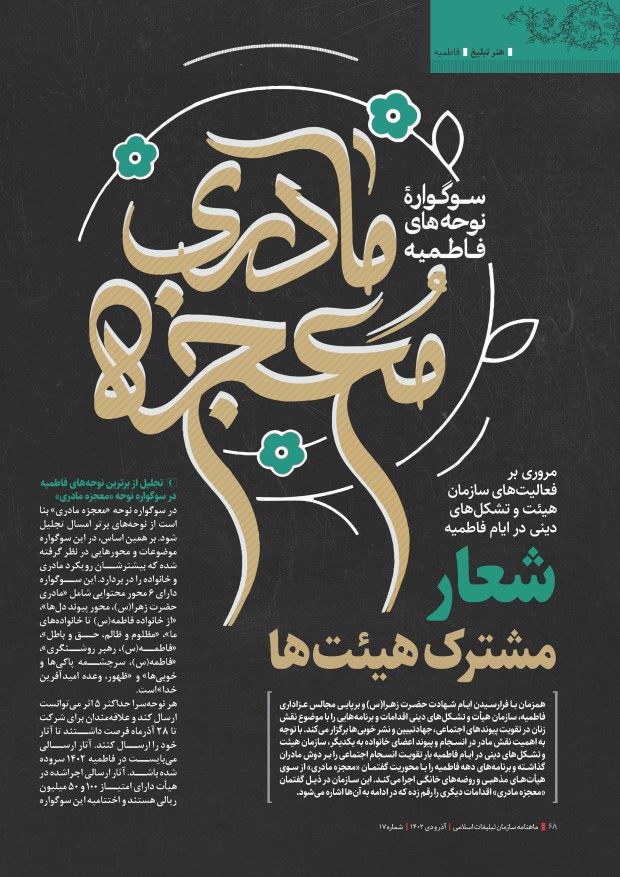 هنر تبلیغ | فاطمیه
سوگوارهٔ
نوحه‌های
فاطمیه
معجزه
مادری
مروری بر
فعالیت‌های سازمان
هیئت و تشکل‌های
دینی در ایام فاطمیه
شعار
مشترک هیئت‌ها
همزمان با فرارسیدن ایام شهادت حضرت زهرا(س) و برپایی مجالس عزاداری
فاطمیه، سازمان هیأت و تشکل‌های دینی اقدامات و برنامه‌هایی را با موضوع نقش
زنان در تقویت پیوندهای اجتماعی، جهادتبیین و نشر خوبی‌ها برگزار می‌کند. با توجه
به اهمیت نقش مادر در انسجام و پیوند اعضای خانواده به یکدیگر، سازمان هیئت
و تشکل‌های دینی در ایام فاطمیه بار تقویت انسجام اجتماعی را بر دوش مادران
گذاشته و برنامه‌های دهه فاطمیه را با محوریت گفتمان «معجزه مادری» از سوی
هیأت‌های مذهبی و روضه‌های خانگی اجرا می‌کند. این سازمان در ذیل گفتمان
«معجزه مادری» اقدامات دیگری را رقم زده که در ادامه به آن‌ها اشاره می‌شود.
تجلیل از برترین نوحه‌های فاطمیه
در سوگواره نوحه «معجزه مادری»
در سوگواره نوحه «معجزه مادری» بنا
است از نوحه‌های برتر امسال تجلیل
شود. بر همین اساس، در این سوگواره
موضوعات و محورهایی در نظر گرفته
شده که بیشترشان رویکرد مادری
و خانواده را در بردارد. این سوگواره
دارای ۶ محور محتوایی شامل «مادری
حضرت زهرا(س)، محور پیوند دل‌ها»،
«از خانواده فاطمه(س) تا خانواده‌های
ما»، «مظلوم و ظالم، حق و باطل»،
«فاطمه(س)، رهبر روشنگری»،
«فاطمه(س)، سرچشمه پاکی‌ها و
خوبی‌ها» و «ظهور، وعده امیدآفرین
خدا» است.
هر نوحه‌سرا حداکثر ۵ اثر می‌توانست
ارسال کند و علاقه‌مندان برای شرکت
تا ۲۸ آذرماه فرصت داشتند تا آثار
خود را ارسال کنند. آثار ارسالی
می‌بایست در فاطمیه ۱۴۰۲ سروده
شده باشد. آثار ارسالی اجراشده در
هیأت دارای امتیاز ۱۰۰ و ۵۰ میلیون
ریالی هستند و اختتامیه این سوگواره
۶۸ | ماهنامه سازمان تبلیغات اسلامی | آذر و دی ۱۴۰۲ | شماره ۱۷